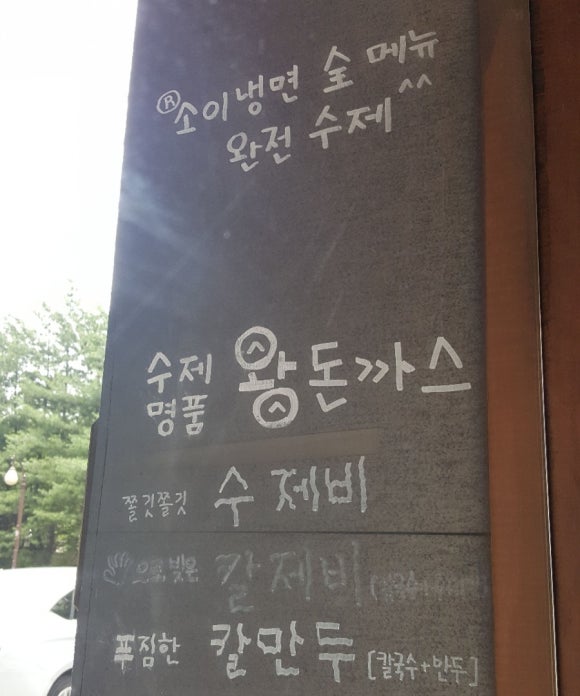 ®소이냉면 全 메뉴
완전 수제^^
수제 명품 왕돈까스
쫄깃쫄깃 수제비
으로 빚은 칼제비
푸짐한 칼만두 [칼국수+만두]